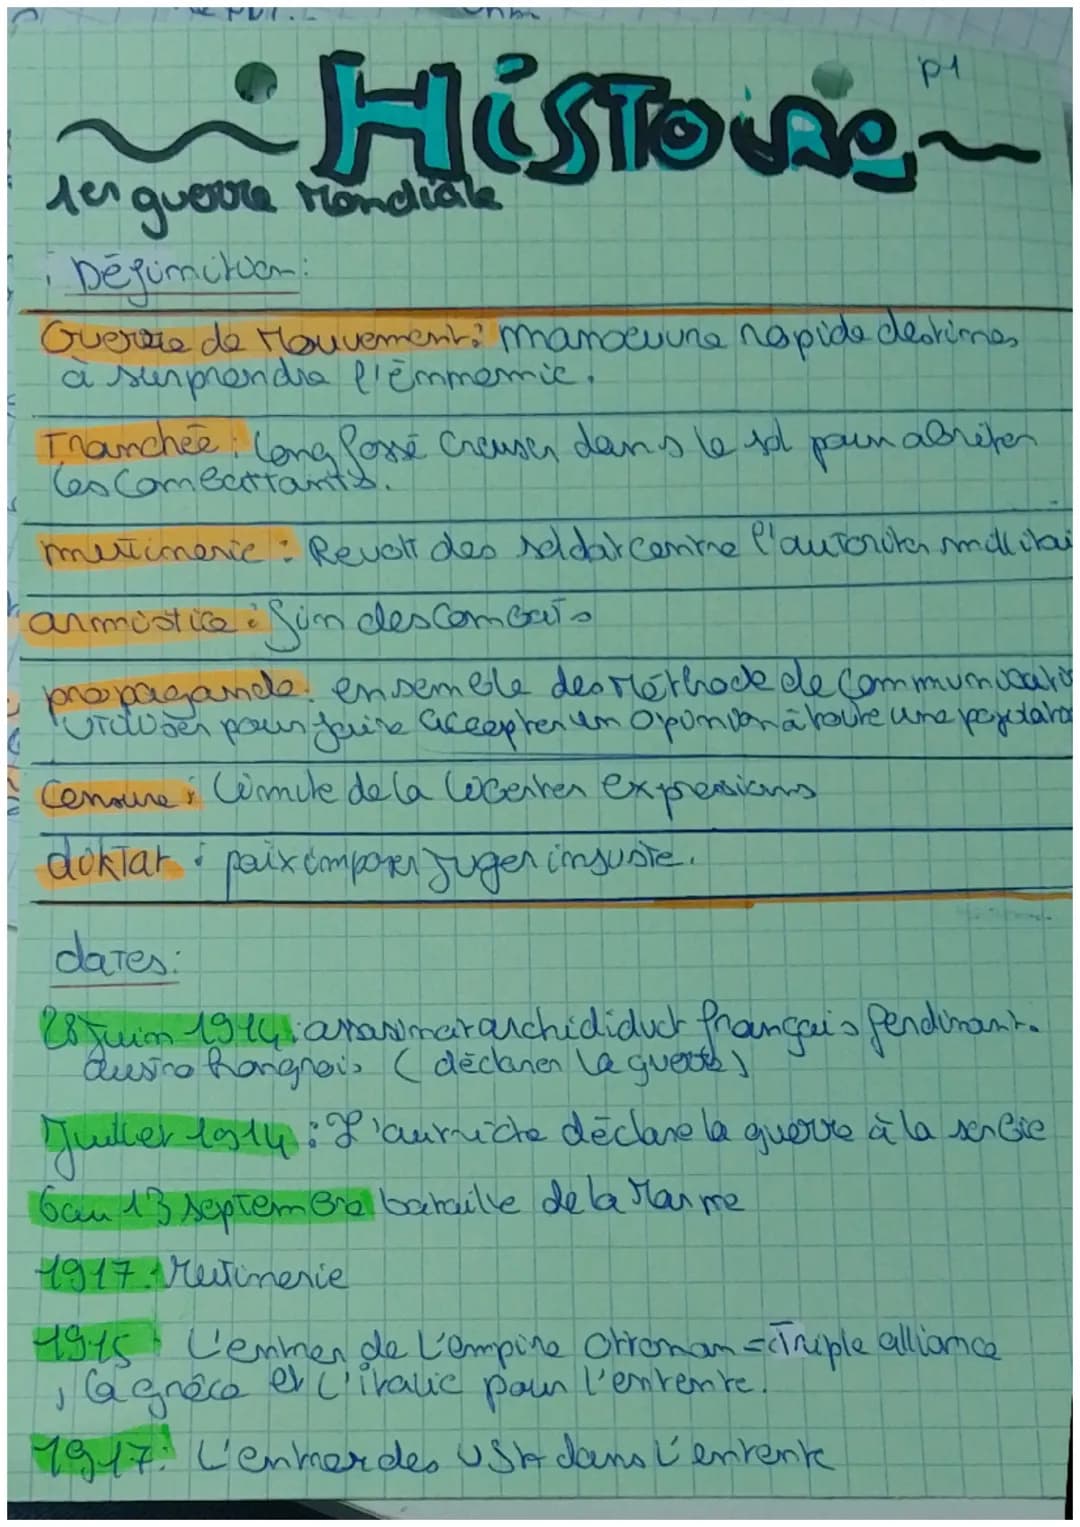 p1
Histoire
1er guerre Mondiale
Définition:
Guerre de Mouvement: manoeuvre rapide destines
à surprendre l'Ennemie.
Tranchée: Long fossé Creuser dans le sol pour abriter
les Combattants.
mutinerie: Revolt des soldat contre l'autoriter millitai
armistice: fin des Combats
propagande: ensemble des Méthode de Communicatio
Utiliser pour faire accepter un opinion à toute une
Censure: Limite de la liberter expressions
diktat: paix imposer juger injuste.
dates:
28 Juin 1914: assasinat archididuct français ferdinant.
austro hongrois (déclarer la guerre)
Juillet 1914: L'autriche déclare la guerre à la serbie
6 au 13 septembre bataille de la Marne
1917: Mutinerie
1915 L'entrer de l'empire Ottoman = Triple alliance
, la grèce et l'italie pour l'entente.
1917: L'entrer des USA dans l'entente